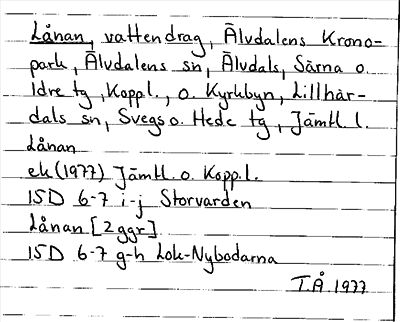 Lånan, vattendrag, Älvdalens Krono-
park, Älvdalens sn, Älvdals, Särna o.
Idre tg, Koppl., o. Kyrkbyn, Lillhär-
dals sn, Svegs o. Hede tg, Jämtl. l.
Lånan
ek (1977) Jämtl. o. Kopp.l.
15D 6-7 i-j Storvarden
Lånan [2 ggr]
15D 6-7 g-h Lok-Nybodarna
T.Å 1977